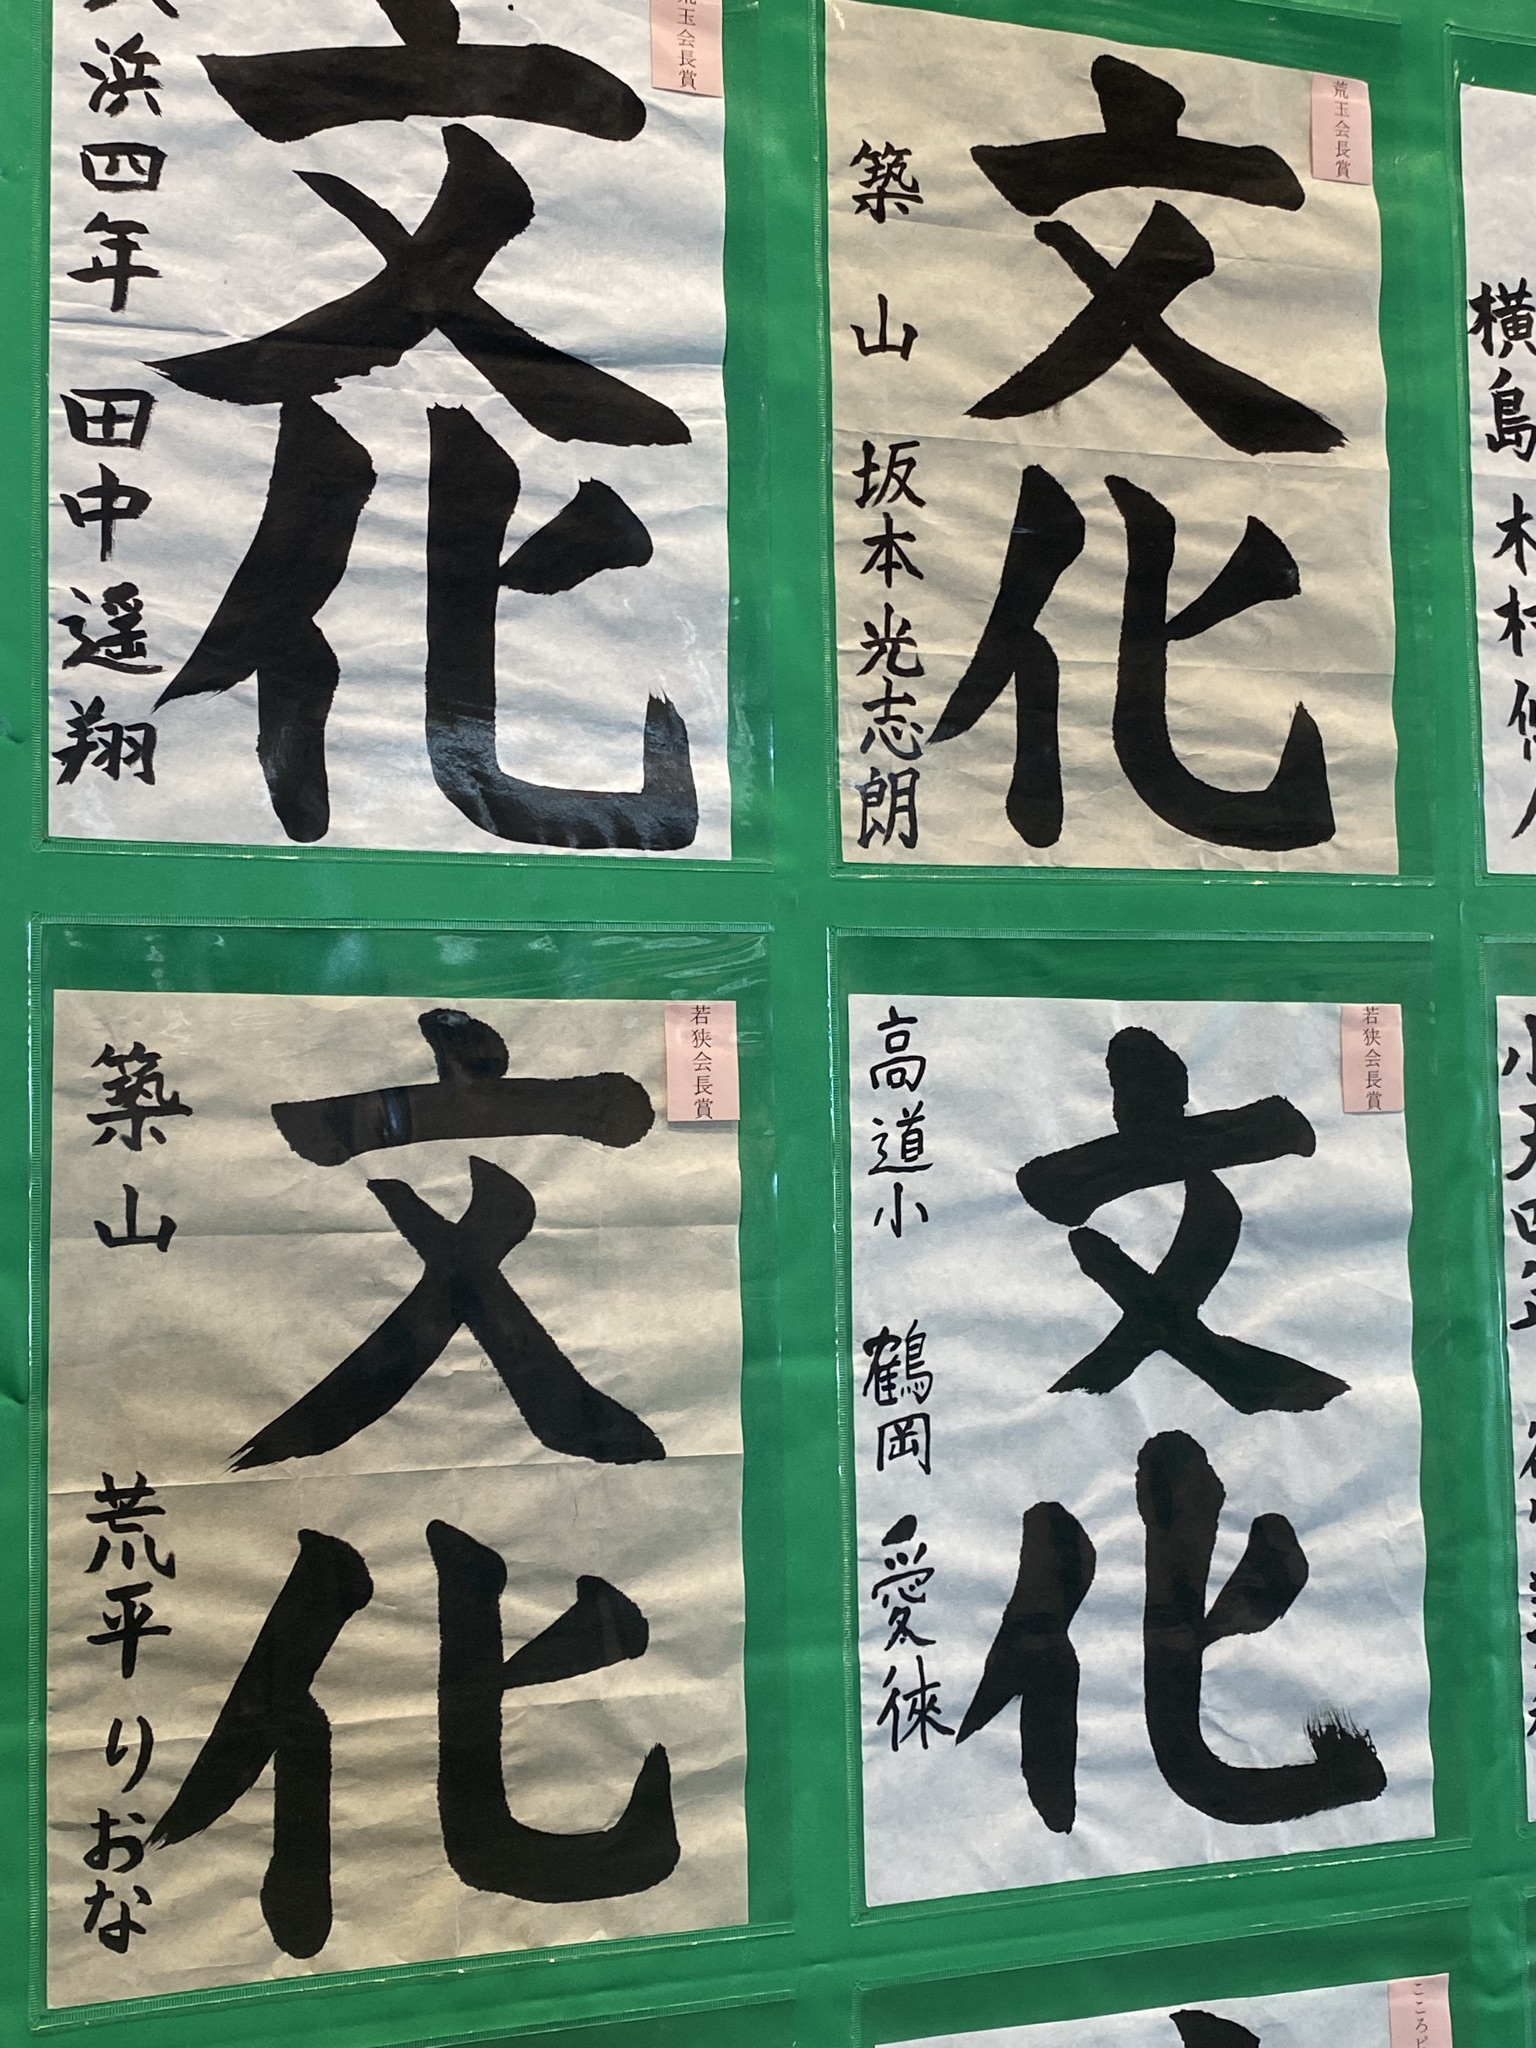 文化
荒玉会長賞
浜四年 田中遥翔
文化
荒玉会長賞
築山 坂本光志朗
横島 木村悠人
文化
若狭会長賞
築山 荒平りおな
文化
若狭会長賞
高道小 鶴岡愛徠
こころピ